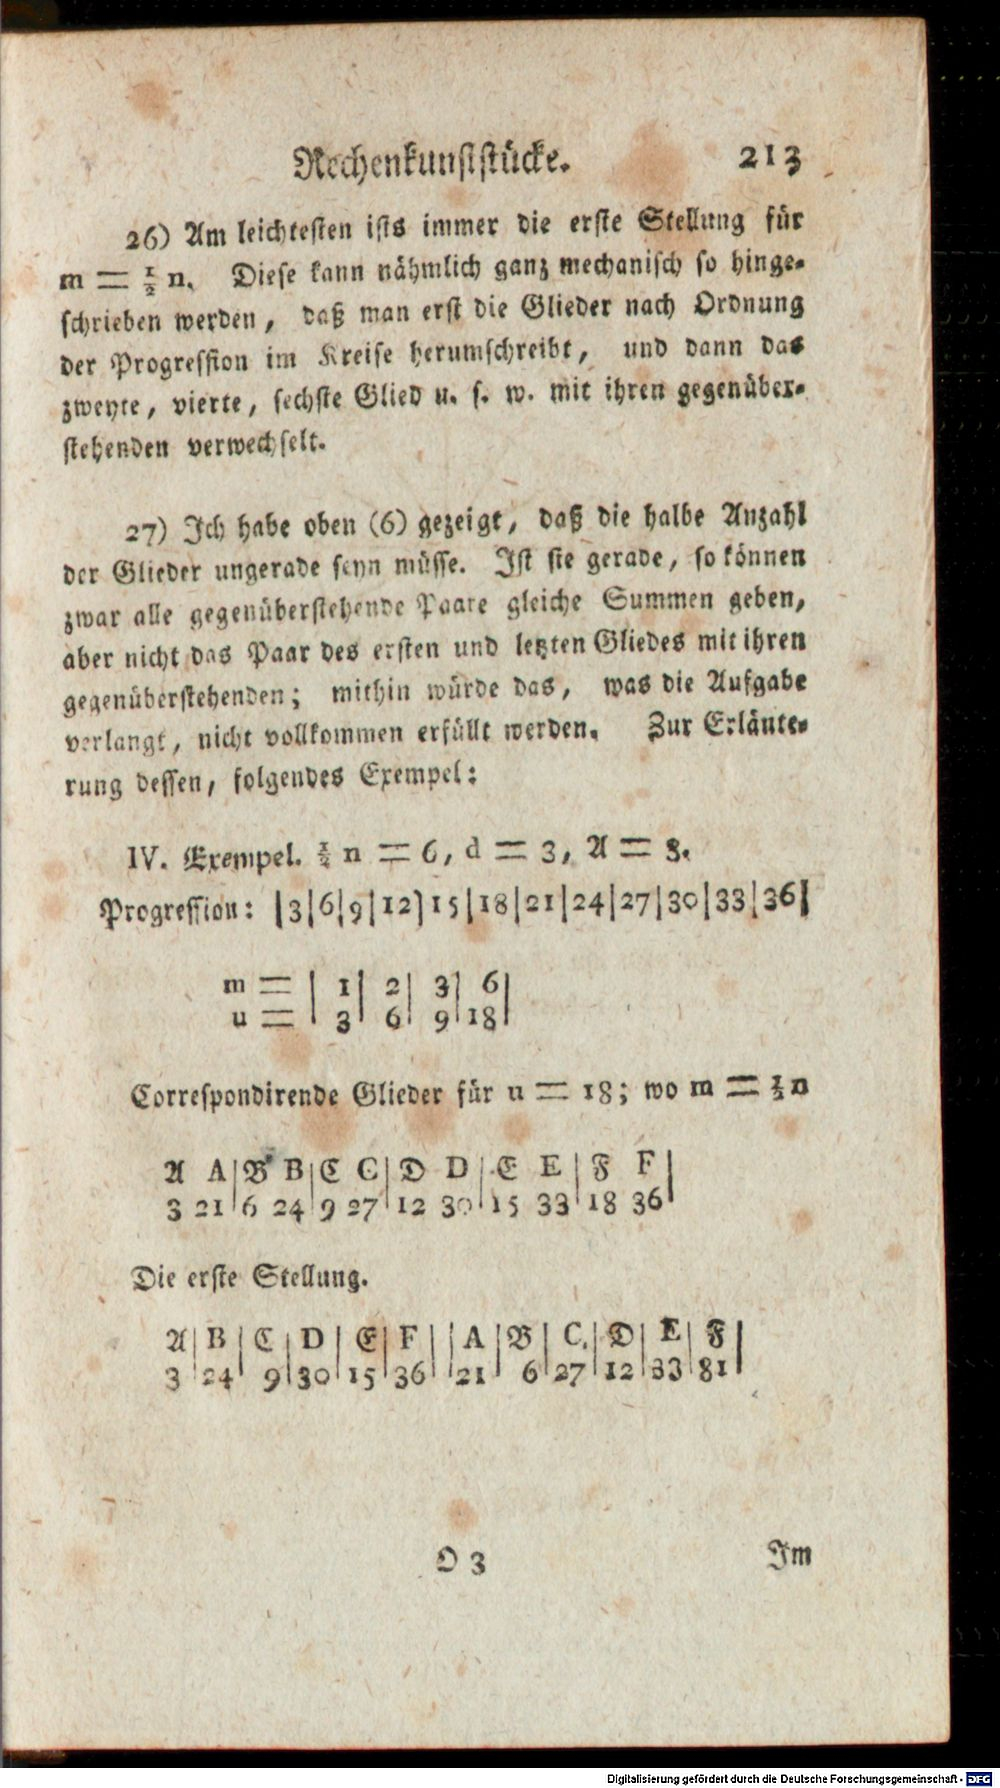 Rechenkunststücke. 213
26) Am leichtesten ists immer die erste Stellung für
m = ½ n. Diese kann nähmlich ganz mechanisch so hinge-
schrieben werden, daß man erst die Glieder nach Ordnung
der Progression im Kreise herumschreibt, und dann das
zweyte, vierte, sechste Glied u. s. w. mit ihren gegenüber-
stehenden verwechselt.
27) Ich habe oben (6) gezeigt, daß die halbe Anzahl
der Glieder ungerade seyn müsse. Ist sie gerade, so können
zwar alle gegenüberstehende Paare gleiche Summen geben,
aber nicht das Paar des ersten und letzten Gliedes mit ihren
gegenüberstehenden; mithin würde das, was die Aufgabe
verlangt, nicht vollkommen erfüllt werden. Zur Erläute-
rung dessen, folgendes Exempel:
IV. Exempel. ½ n = 6, d = 3, A = 3.
Progression: |3|6|9|12|15|18|21|24|27|30|33|36|
m = | 1| 2| 3| 6|
u = | 3| 6| 9|18|
Correspondirende Glieder für u = 18; wo m = ½ n
𝔄 A|𝔅 B|ℭ C|𝔇 D|𝔈 E|𝔉 F|
3 21|6 24|9 27|12 30|15 33|18 36|
Die erste Stellung.
𝔄|B|ℭ|D|𝔈|F||A|𝔅|C|𝔇|E|𝔉|
3|24|9|30|15|36||21|6|27|12|33|81|
O 3 Im
Digitalisierung gefördert durch die Deutsche Forschungsgemeinschaft - DFG